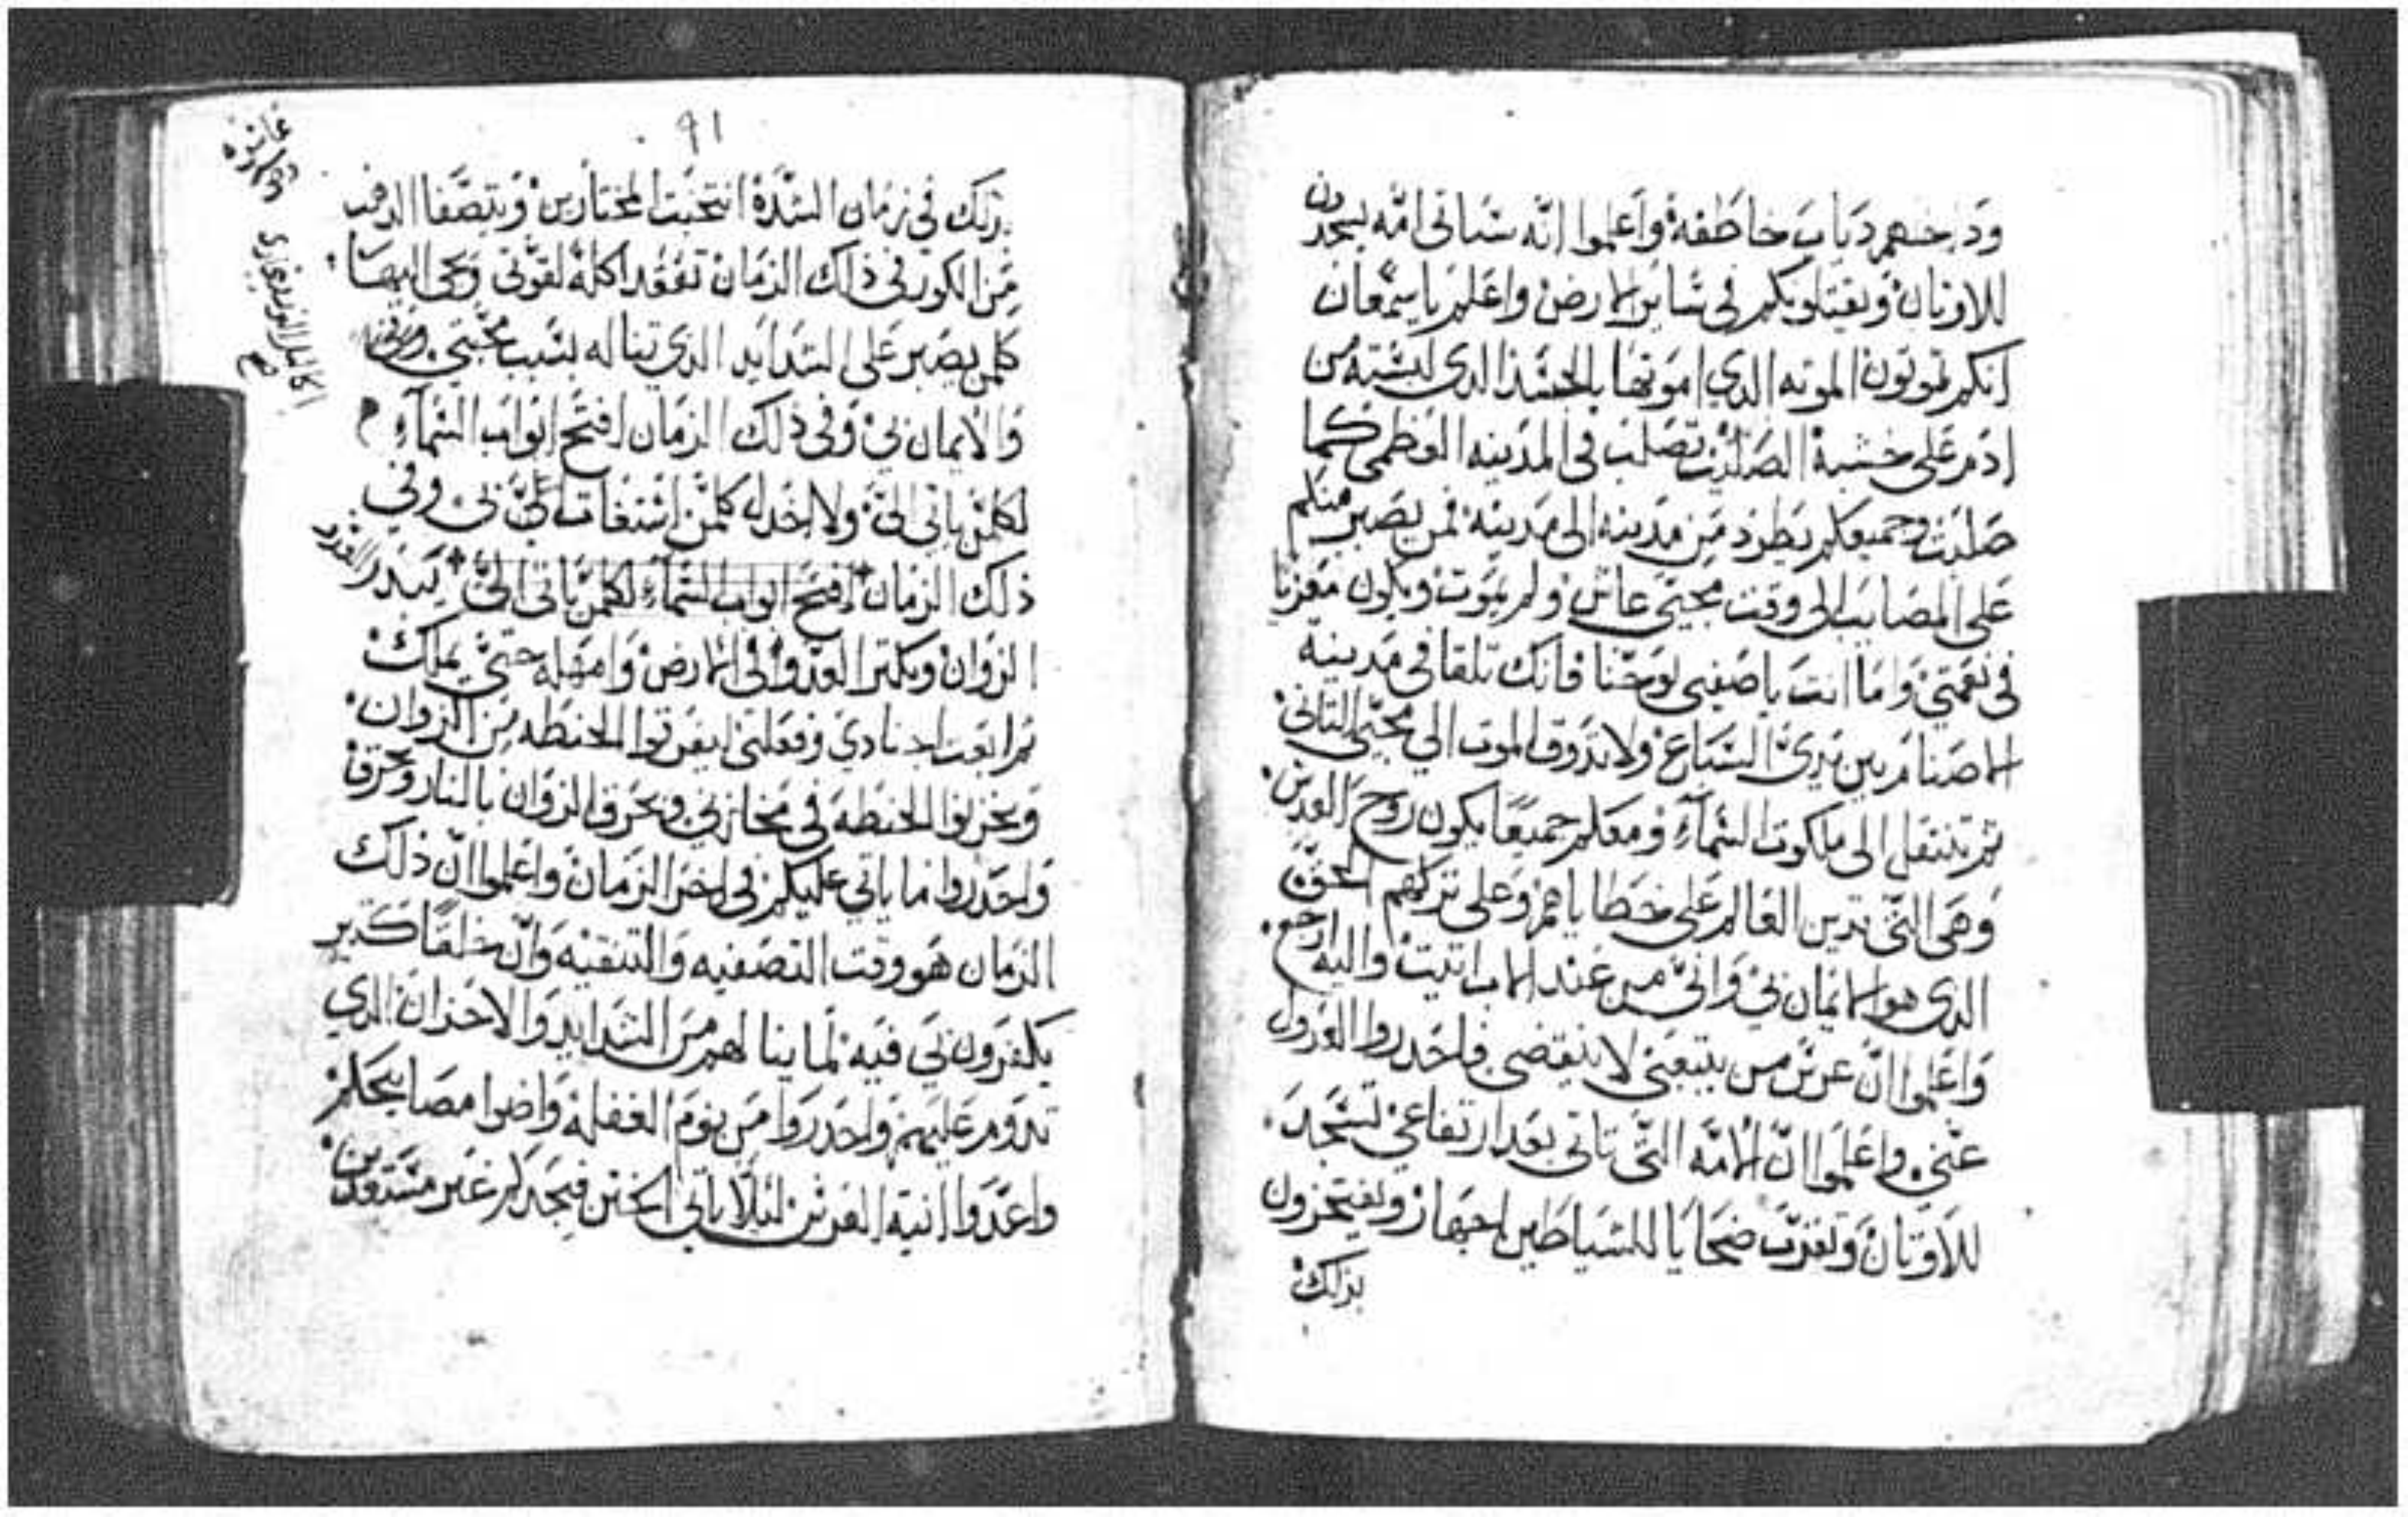 ودياب خاطفة واعلموا انه ستاتى امّه ليسجدن
للاوتان ويقتلوبكم فى ساير الارض واعلم يا سمعان
انكم تموتون الموته الدي اموتها بالجسد الدى لبسته من
ادم على خشبة الصليب تصلب فى المدينه العظمى كما
صلبت وجميعكم يطرد من مدينه الى مدينة فمن يصبر منكم
على المصايب الى وقت مجيى عاش ولم يموت ويكون معزيا
فى نعمتي وما انت يا صفيى يوحنا فانك تلقا فى مدينه
الاصنام بين يدى السباع ولا تدوق الموت الي مجيى التانى
تم تنتقل الى ملكوت السمآء ومعكم جميعًا يكون روح القدس
وهى التى تدين العالم على خطاياهم وعلى تركهم الحق
الدى هو الايمان بي وانى من عند الاب اتيت واليه ارجع
واعلموا ان عرس من يتبعنى لا ينقضى فاحدروا العدول
عنى واعلموا انّ الامّه التى تاتى بعد ارتفاعي تسجد
للاوتان وتقرب ضحايا للشياطين احبها ويفتخرون
بدلك
٩١
بدلك في زمان الشدة انتخبت المختارين ويتصفا الدهب
من الكور فى ذلك الزمان تفقد اكلة لقوتى وحى اليها
كلمن يصبر على الشدايد الدي تناله بسبب محبتي
والايمان بي وفى ذلك الزمان افتح ابواب السمآء
لكلمن ياتى الىّ ولا اخدله كلمن استغات بى وفي
ذلك الزمان افتح ابواب السمآء لكلمن ياتى الىّ يبدر العدو
الزوان ويكتر العدو فى الارض وامهله حتى يملك
تم ابعت اجنادي وفعلتى ليفرقوا الحنطه من الزوان
ويخزنوا الحنطه فى مخازني ويحرق الزوان بالنار
واحدروا ما ياتي عليكم فى اخر الزمان واعلموا انّ ذلك
الزمان هو وقت التصفيه والتنقيه وانّ خلقًا كتير
يكفرون بي فيه لما ينالهم من الشدايد والاحزان الدي
تدوم عليهم واحدروا من نوم الغفلة واضوا مصابيحكم
واعدّوا انية العرس ليلا ياتى الختن فيجدكم غير مستعدين